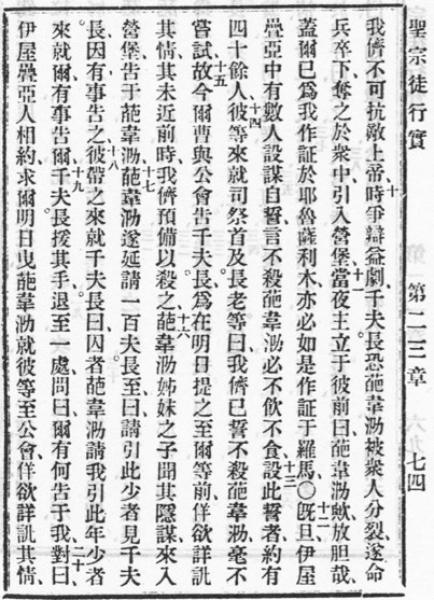 聖宗徒行實 第二三章 七四
我儕不可抗敵上帝、十時爭辯益劇、千夫長恐葩韋泐被衆人分裂、遂命
兵卒下奪之於衆中、引入營堡。十一當夜主立于彼前曰、葩韋泐、放胆哉、
蓋爾已爲我作証於耶魯薩利木、亦必如是作証于羅馬〇十二旣旦、伊屋
疊亞中有數人設謀、自誓言、不殺葩韋泐、必不飮不食、十三設此誓者、約有
四十餘人、十四彼等來就司祭首及長老等曰、我儕已誓不殺葩韋泐、毫不
嘗試、十五故今爾曹與公會告千夫長、爲在明日提之至爾等前、佯欲詳訊
其情、其未近前時、我儕預備以殺之、十六葩韋泐姊妹之子聞其隱謀、來入
營堡、告于葩韋泐、十七葩韋泐遂延請一百夫長至曰、請引此少者見千夫
長、因有事告之、十八彼帶之來就千夫長曰、囚者葩韋泐請我引此年少者
來就爾、有事告爾、十九千夫長援其手、退至一處、問曰、爾有何告于我、二十對曰、
伊屋疊亞人相約求爾、明日曳葩韋泐就彼等至公會、佯欲詳訊其情、